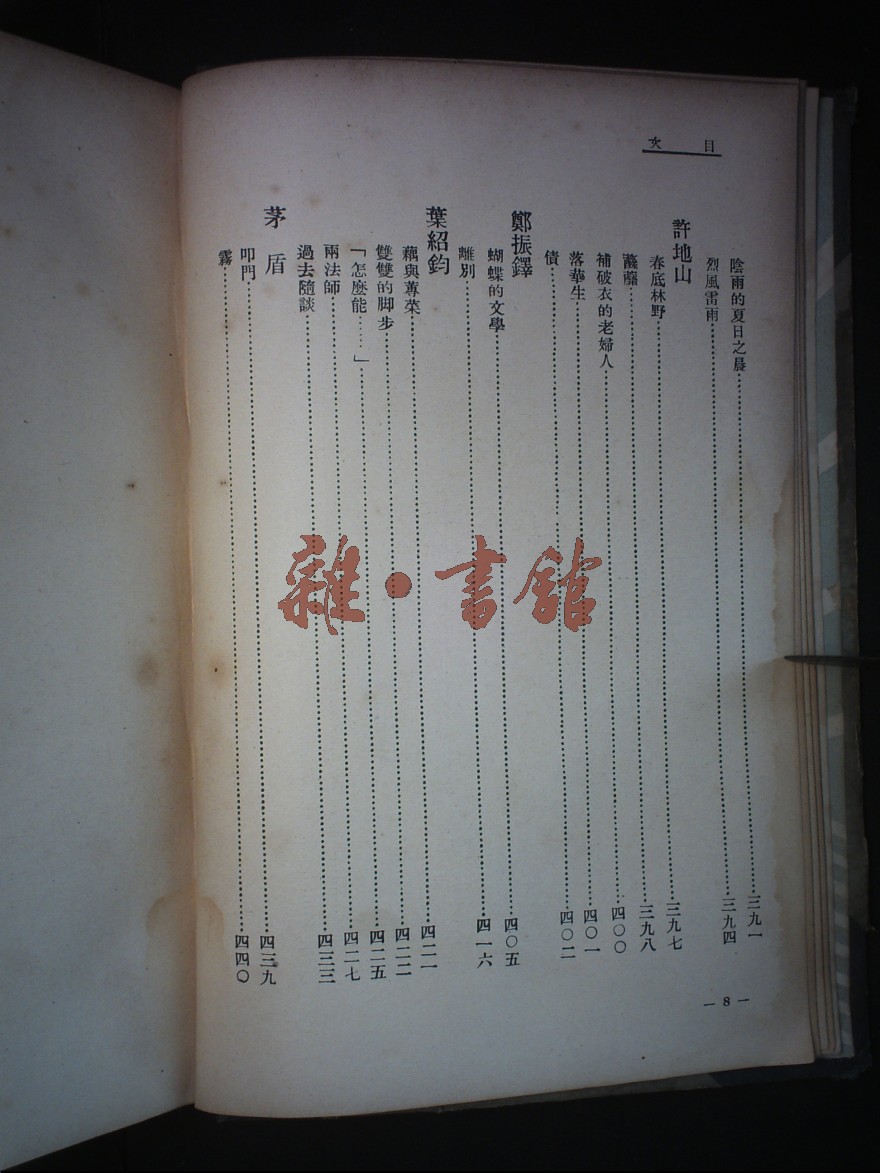 目次
陰雨的夏日之晨……三九一
烈風雷雨……三九四
許地山
春底林野……三九七
……三九八
補破衣的老婦人……四〇〇
落華生……四〇一
債……四〇二
鄭振鐸
蝴蝶的文學……四〇五
離別……四一六
葉紹鈞
藕與蓴菜……四二一
雙雙的脚步……四二二
「怎麼能……」……四二五
兩法師……四二七
過去隨談……四三三
茅盾
叩門……四三九
霧……四四〇
— 8 —
雜·書館